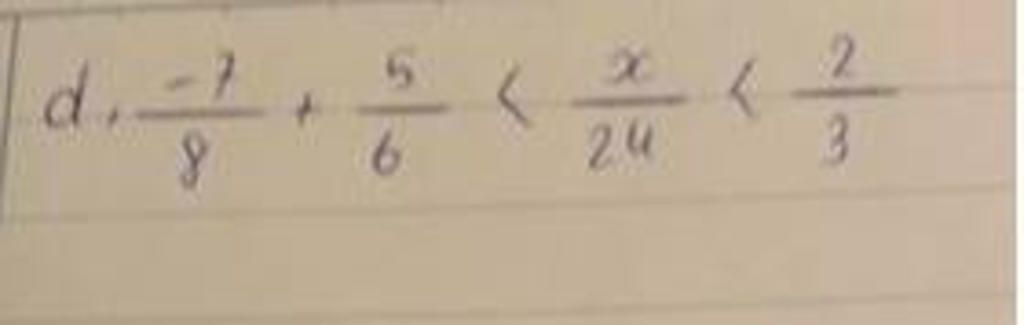 d. \frac{-7}{8} + \frac{5}{6} < \frac{x}{24} < \frac{2}{3}